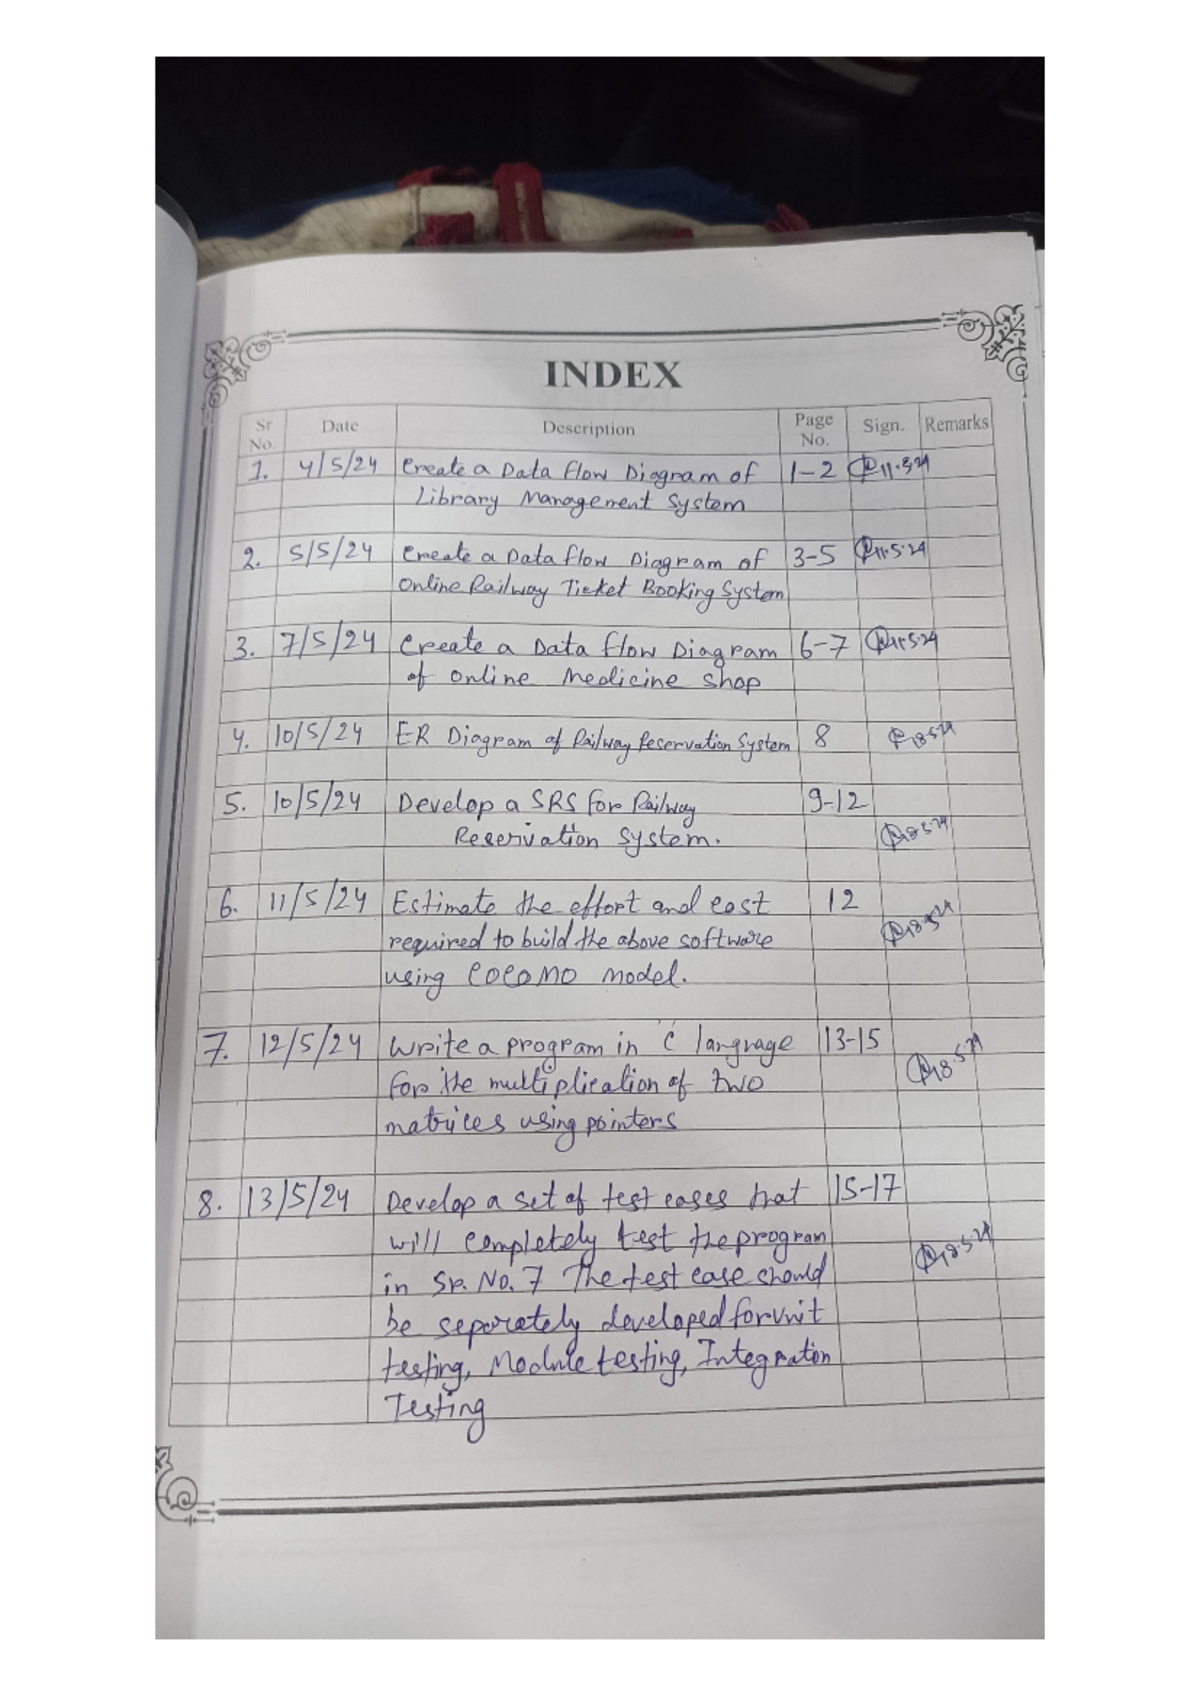 INDEX
Sr No. Date Description Page No. Sign. Remarks
1. 4/5/24 Create a Data Flow Diagram of 1-2 11.5.24
Library Management System
2. 5/5/24 Create a Data flow Diagram of 3-5 11.5.24
Online Railway Ticket Booking System
3. 7/5/24 Create a Data flow Diagram 6-7 11.5.24
of online Medicine shop
4. 10/5/24 ER Diagram of Railway Reservation System 8 18.5.24
5. 10/5/24 Develop a SRS for Railway 9-12
Reservation System. 18.5.24
6. 11/5/24 Estimate the effort and cost 12
required to build the above software 18.5.24
using COCOMO model.
7. 12/5/24 Write a program in 'C' language 13-15
for the multiplication of two 18.5.24
matrices using pointers
8. 13/5/24 Develop a set of test cases that 15-17
will completely test the program 18.5.24
in Sr. No. 7 The test case should
be separately developed for unit
testing, Module testing, Integration
Testing